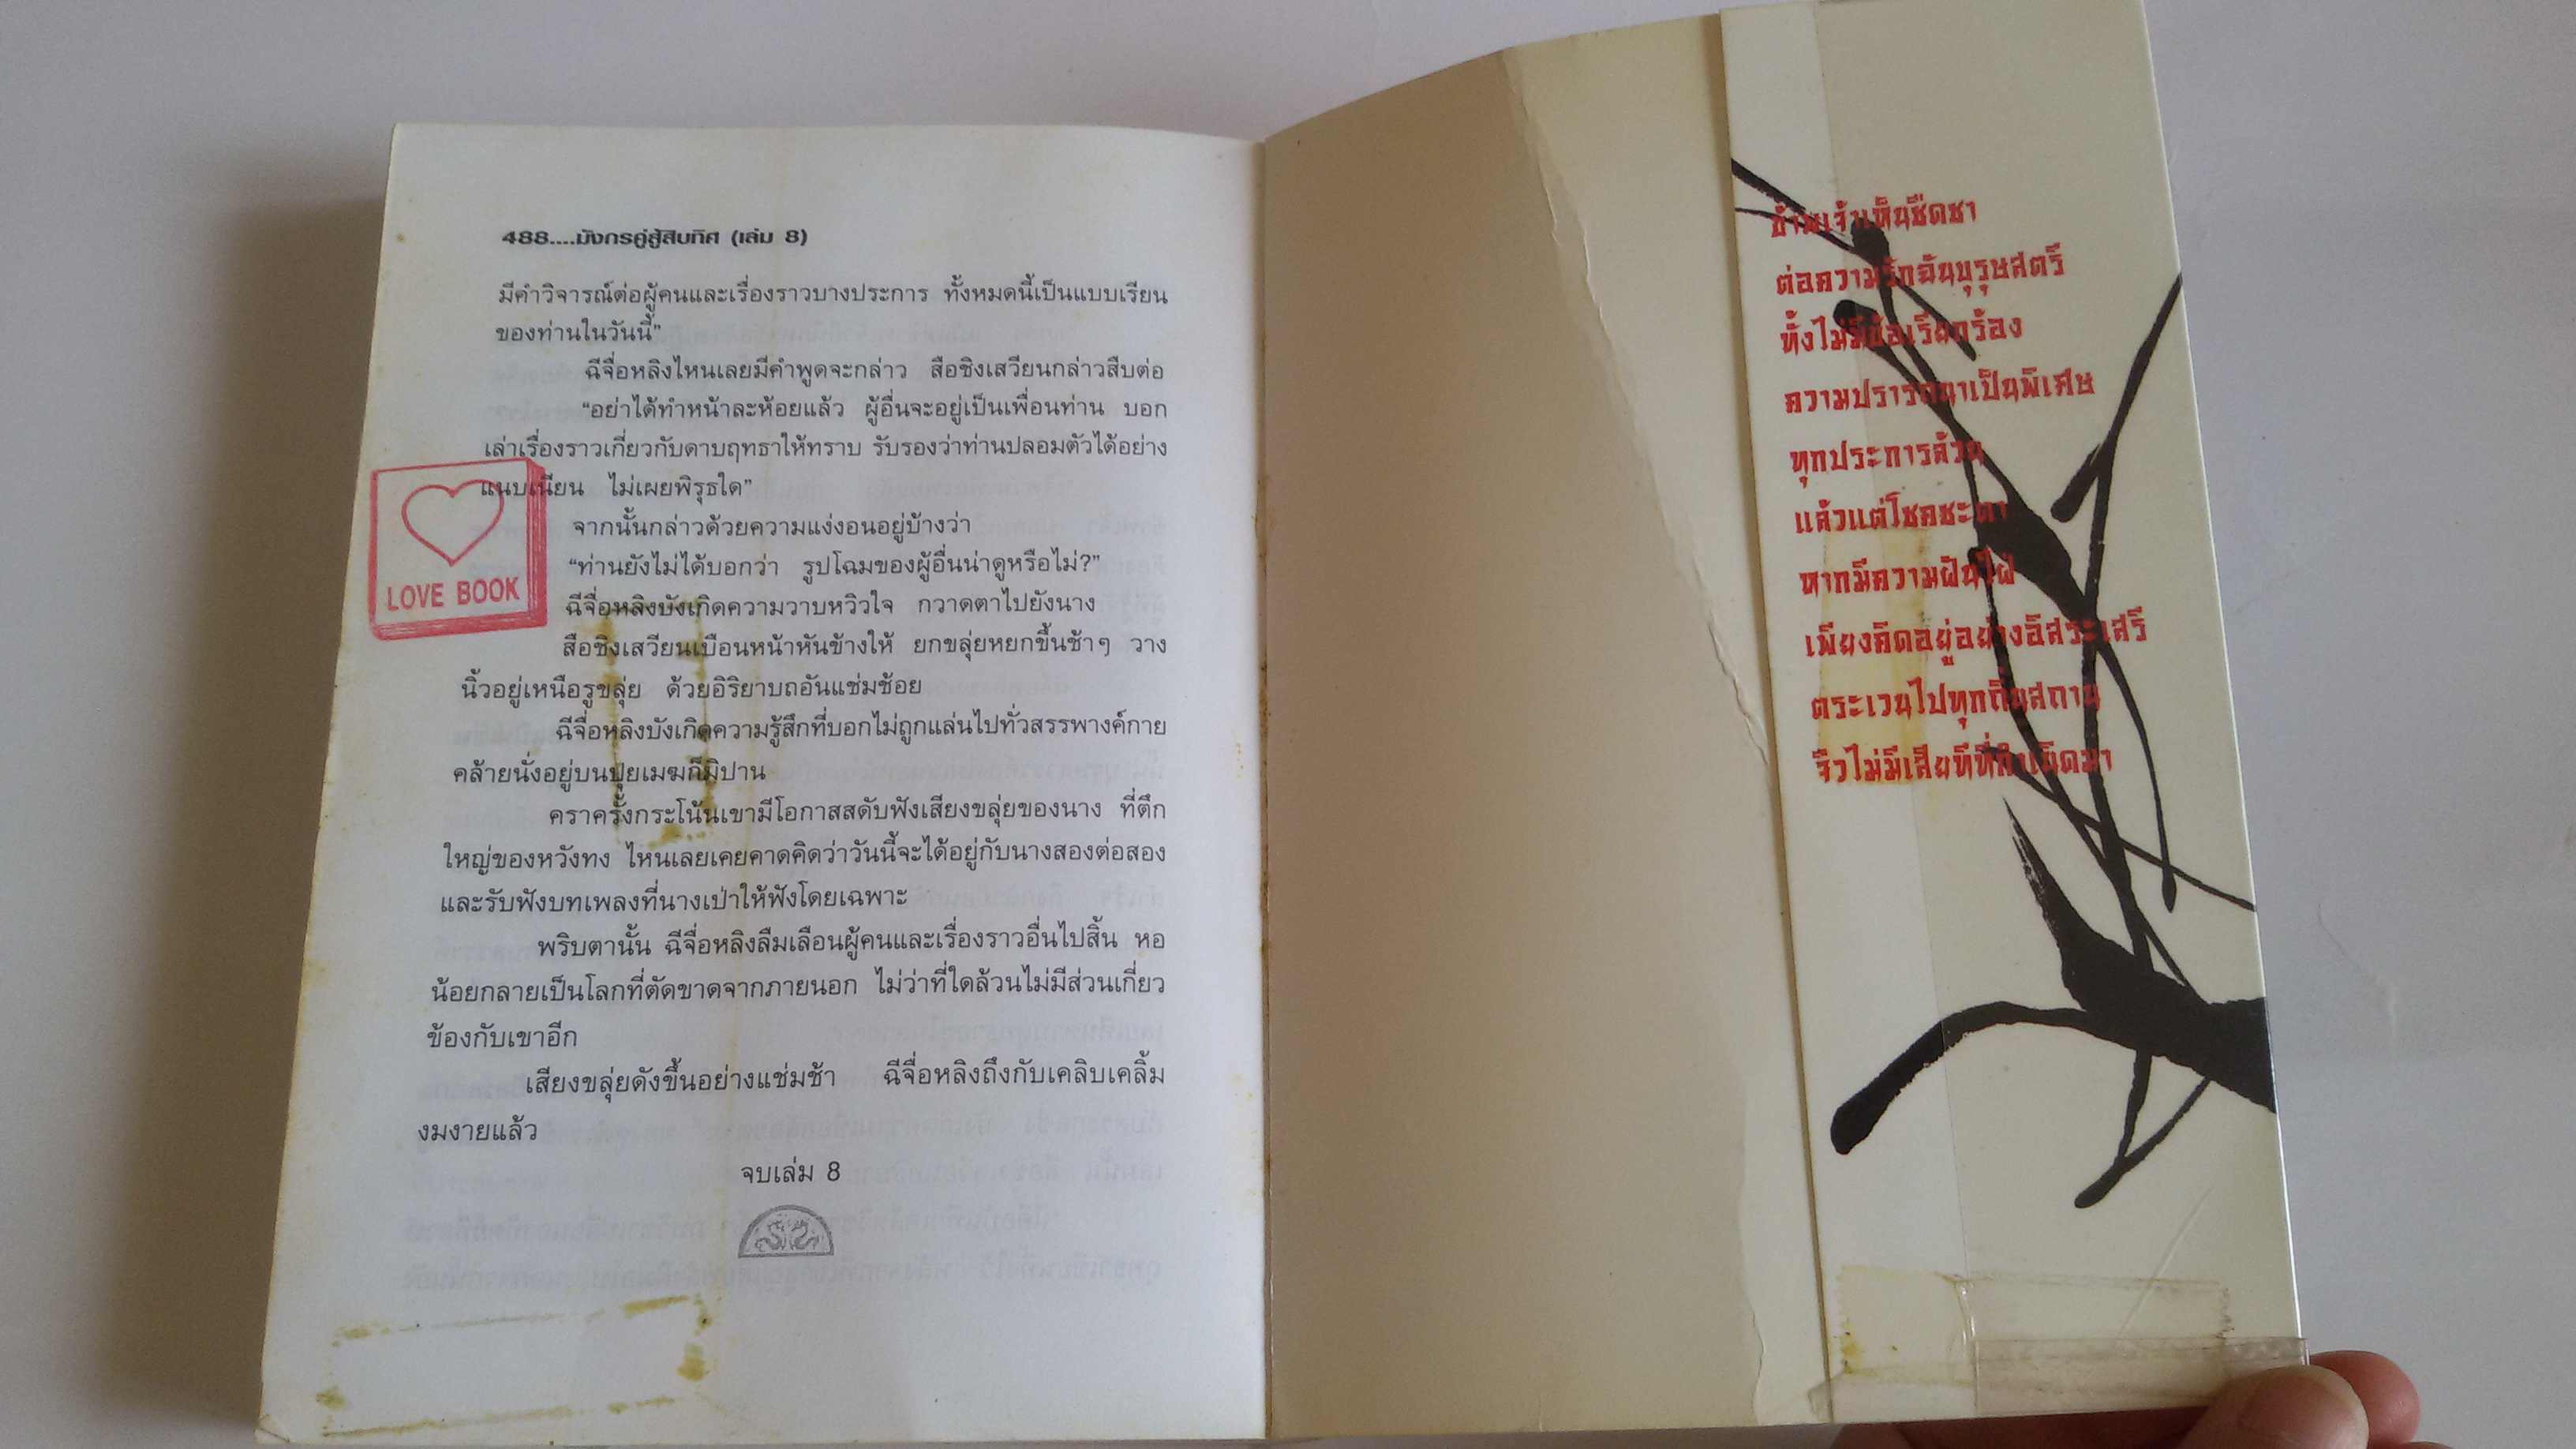 488....มังกรคู่สู้สิบทิศ (เล่ม 8)
มีคำวิจารณ์ต่อผู้คนและเรื่องราวบางประการ ทั้งหมดนี้เป็นแบบเรียน
ของท่านในวันนี้”
ฉีจื่อหลิงไหนเลยมีคำพูดจะกล่าว สือชิงเสวียนกล่าวสืบต่อ
“อย่าได้ทำหน้าละห้อยแล้ว ผู้อื่นจะอยู่เป็นเพื่อนท่าน บอก
เล่าเรื่องราวเกี่ยวกับดาบฤทธาให้ทราบ รับรองว่าท่านปลอมตัวได้อย่าง
แนบเนียน ไม่เผยพิรุธใด”
จากนั้นกล่าวด้วยความแง่งอนอยู่บ้างว่า
“ท่านยังไม่ได้บอกว่า รูปโฉมของผู้อื่นน่าดูหรือไม่?”
ฉีจื่อหลิงบังเกิดความวาบหวิวใจ กวาดตาไปยังนาง
สือชิงเสวียนเบือนหน้าหันข้างให้ ยกขลุ่ยหยกขึ้นช้าๆ วาง
นิ้วอยู่เหนือรูขลุ่ย ด้วยอิริยาบถอันแช่มช้อย
ฉีจื่อหลิงบังเกิดความรู้สึกที่บอกไม่ถูกแล่นไปทั่วสรรพางค์กาย
คล้ายนั่งอยู่บนปุยเมฆก็มิปาน
คราครั้งกระโน้นเขามีโอกาสสดับฟังเสียงขลุ่ยของนาง ที่ตึก
ใหญ่ของหวังทง ไหนเลยเคยคาดคิดว่าวันนี้จะได้อยู่กับนางสองต่อสอง
และรับฟังบทเพลงที่นางเป่าให้ฟังโดยเฉพาะ
พริบตานั้น ฉีจื่อหลิงลืมเลือนผู้คนและเรื่องราวอื่นไปสิ้น หอ
น้อยกลายเป็นโลกที่ตัดขาดจากภายนอก ไม่ว่าที่ใดล้วนไม่มีส่วนเกี่ยว
ข้องกับเขาอีก
เสียงขลุ่ยดังขึ้นอย่างแช่มช้า ฉีจื่อหลิงถึงกับเคลิบเคลิ้ม
งมงายแล้ว
จบเล่ม 8
LOVE BOOK
ข้าพเจ้าเห็นชืดชา
ต่อความรักฉันบุรุษสตรี
ทั้งไม่มีข้อเรียกร้อง
ความปรารถนาเป็นพิเศษ
ทุกประการล้วน
แล้วแต่โชคชะตา
หากมีความฝันใฝ่
เพียงคิดอยู่อย่างอิสระเสรี
ตระเวนไปทุกถิ่นสถาน
จึงไม่มีเสียทีที่กำเนิดมา